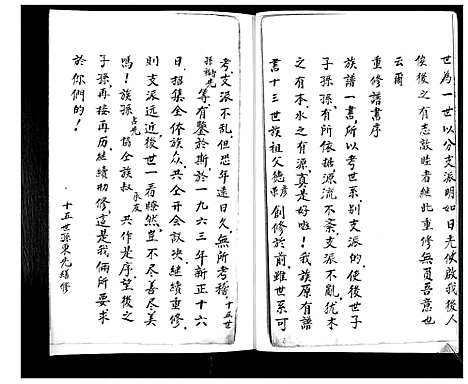 世為一世以分支派明如日光使啟我後人
俟後之有志敦睦者繼此重修無負吾意也
云爾
重修譜書序
族譜一書，所以考世系，别支派的，使後世子
子孫孫，有所依据，源流不紊，支派不亂，犹木
之有本，水之有源，真是好啦！我族原有譜
書，十三世族祖父德彦創修於前，雖世系可
考，支派不亂，但恐年遠日久，無所考稽，十五世
孫樹光等有鑒於斯，於一九六三年新正十六
日，招集全体族众，共仝开会議决，継續重修，
則支派远近，後世一看瞭然，豈不尽善尽美
嗎！族孫占光協仝族叔永友共作是序，望後之
子孫，再接再历，継續切修，這是我俩所要求
於你們的！
十五世孫東光繕修